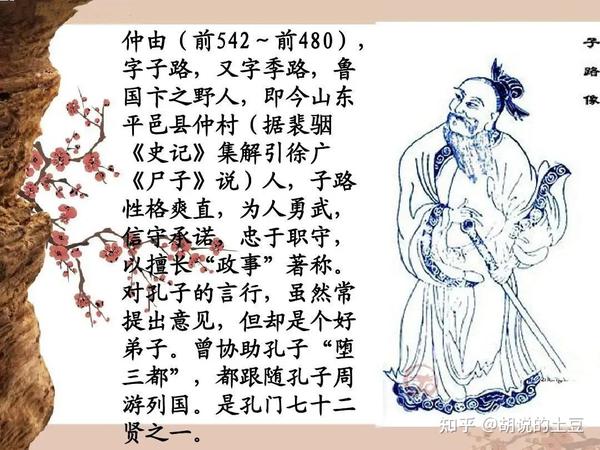 仲由（前542～前480），
字子路，又字季路，鲁
国卞之野人，即今山东
平邑县仲村（据裴骃
《史记》集解引徐广
《尸子》说）人，子路
性格爽直，为人勇武，
信守承诺，忠于职守，
以擅长“政事”著称。
对孔子的言行，虽然常
提出意见，但却是个好
弟子。曾协助孔子“堕
三都”，都跟随孔子周
游列国。是孔门七十二
贤之一。
子路像
知乎 @胡说的土豆